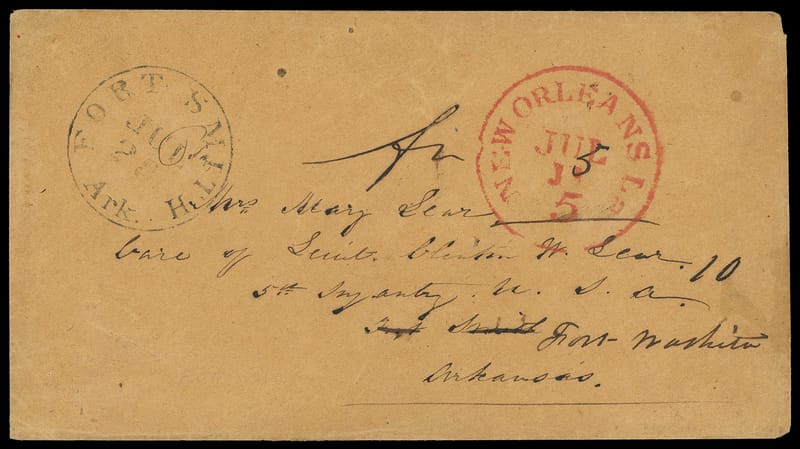 FORT SMITH
Ark.
NEW ORLEANS La
JUL
5
5
Mrs Mary Lear
Care of Lieut. Clinton W. Lear.
10
5th Infantry. U. S. A.
Fort Smith Fort Washita
Arkansas.